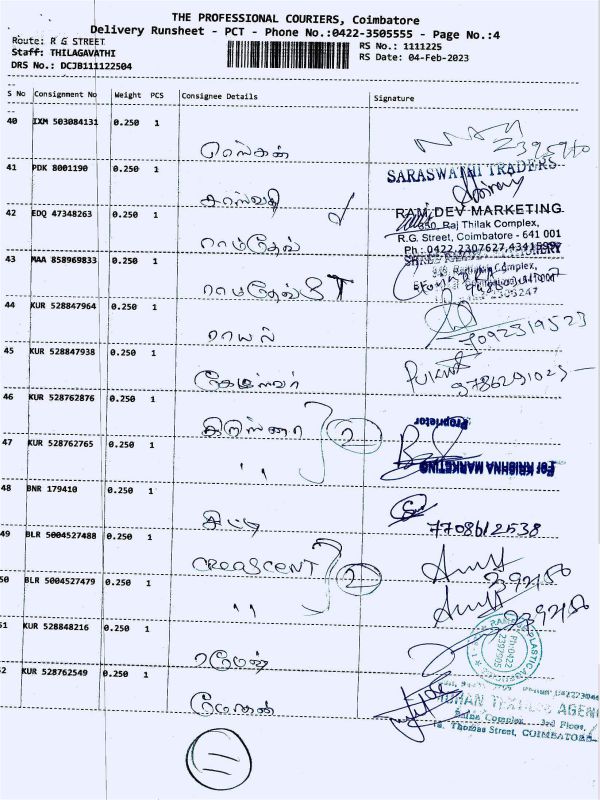 THE PROFESSIONAL COURIERS, Coimbatore
Delivery Runsheet - PCT - Phone No.:0422-3505555 - Page No.:4
Route: R G STREET
Staff: THILAGAVATHI
DRS No.: DCJB111122504
RS No.: 1111225
RS Date: 04-Feb-2023
S No Consignment No Weight PCS Consignee Details Signature
40 IXM 503084131 0.250 1
41 PDK 8001190 0.250 1
SARASWATHI TRADERS
42 EDQ 47348263 0.250 1 ராம்தேவ்
RAM DEV MARKETING
350, Raj Thilak Complex,
R.G. Street, Coimbatore - 641 001
Ph : 0422 2307627,
43 MAA 858969833 0.250 1 ராமதேவ் ST
Complex,
44 KUR 528847964 0.250 1 ராயல்
7092319523
45 KUR 528847938 0.250 1
9786291023
46 KUR 528762876 0.250 1 கிறிஸ்னா 2
Proprietor
47 KUR 528762765 0.250 1 "
For KRISHNA MARKETING
48 BNR 179410 0.250 1
7708612538
49 BLR 5004527488 0.250 1 CREASCENT 2
2392156
50 BLR 5004527479 0.250 1 "
2392156
51 KUR 528848216 0.250 1
PLASTIC
PH:0422
2397905
52 KUR 528762549 0.250 1 மோகன்
MOHAN TEXTILES AGEN
Complex, 3rd Floor,
Thomas Street, COIMBATORE